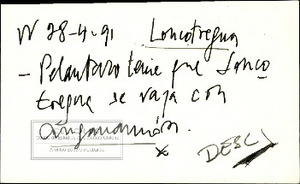 W 28-4-91 Loncotregua
- Pelantaro teme que Lonco
tregua se vaya con
Anganamón.
x DESC